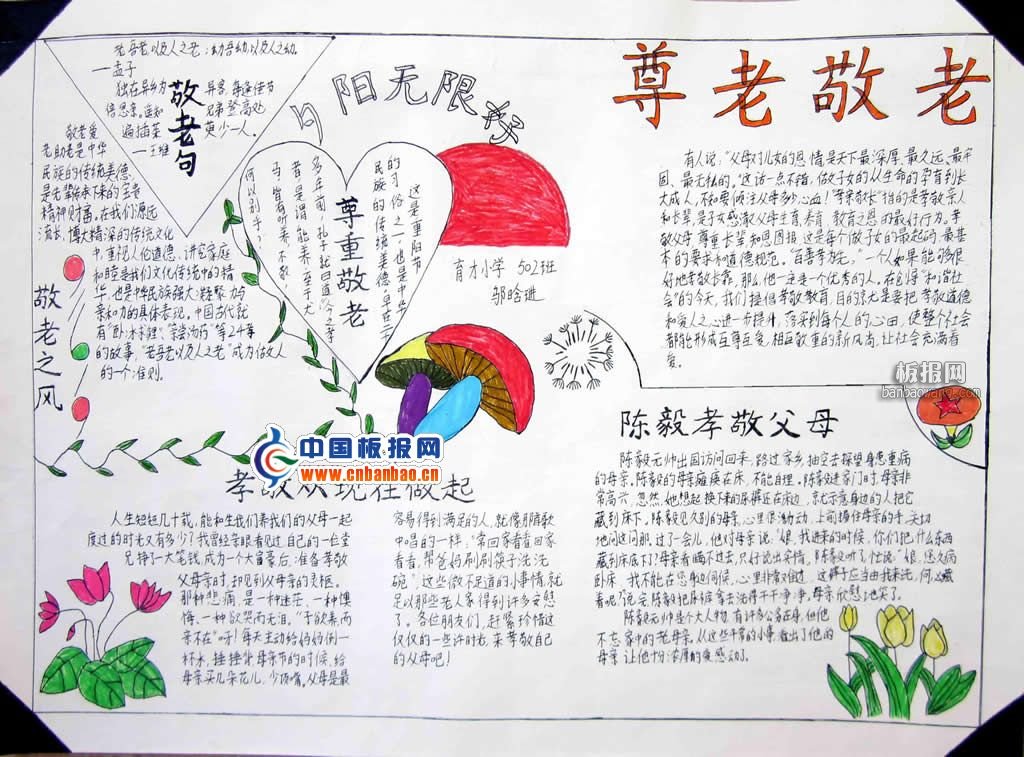 尊老敬老
夕阳无限好
老吾老以及人之老；幼吾幼以及人之幼。
—孟子
独在异乡为异客，每逢佳节
倍思亲。遥知兄弟登高处，
遍插茱萸少一人。
—王维
敬老句
敬老爱
老助老是中华
民族的传统美德，
是先辈传承下来的宝贵
精神财富。在我们源远
流长，博大精深的传统文化
中，重视人伦道德、讲究家庭
和睦是我们文化传统中的精
华，也是中华民族强大凝聚力与
亲和力的具体表现。中国古代就
有“卧冰求鲤”、“亲尝汤药”等24孝
的故事，“老吾老以及人之老”成为做人
的一个准则。
敬老之风
尊重敬老
这是重阳节
的习俗之一，也是中华
民族的传统美德。早在二千
多年前，孔子就曰道：“今之孝
者，是谓能养。至于犬
马，皆有所养；不敬，
何以别乎？”
育才小学 502班
有人说：“父母对儿女的恩情是天下最深厚、最久远、最牢
固、最无私的。”这话一点不错，做子女的从生命的孕育到长
大成人，不知要倾注父母多少心血！“孝亲敬长”指的是孝敬亲人
和长辈，是子女感激父母生育、养育、教育之恩的最好行为。孝
敬父母，尊重长辈和恩图报，这是每个做子女的最起码、最基
本的要求和道德规范。“百善孝为先。”一个人如果能够很
好地孝敬长辈，那么他一定是一个优秀的人。在创导“和谐社
会”的今天，我们提倡孝敬教育，目的就是要把孝敬道德
和爱人之心进一步提升，落实到每个人的心田，使整个社会
都能形成互尊互爱，相互敬重的新风尚，让社会充满着
爱。
板报网
banbaowang.com
中国板报网
www.cnbanbao.cn
陈毅孝敬父母
陈毅元帅出国访问回来，路过家乡，抽空去探望身患重病
的母亲。陈毅的母亲瘫痪在床，不能自理。陈毅进家门时，母亲非
常高兴，忽然她想起换下来的尿裤还在床边，就示意身边的人把它
藏到床下，陈毅见久别的母亲，心里很激动，上前握住母亲的手，关切
地问这问那。过了一会儿，他对母亲说：“娘，我进来的时候，你们把什么东西
藏到床底下了？”母亲看瞒不过去，只好说出实情，陈毅听了，忙说：“娘，您久病
卧床，我不能在您身边伺候，心里非常难过，这裤子应当由我来洗，何必藏
着呢？”说完陈毅把尿裤拿去洗得干干净净，母亲欣慰地笑了。
陈毅元帅是个大人物，有许多公务在身，但他
不忘家中的老母亲。从这些平常的小事，看出了他的
母亲让他十分浓厚的爱感动了。
孝敬从现在做起
人生短短几十载，能和生我们养我们的父母一起
度过的时光又有多少？我曾经亲眼看见过自己的一位堂
兄挣了一大笔钱，成为一个大富豪后，准备孝敬
父母亲时，却见到父母亲的灵柩。
那种悲痛，是一种迷茫，一种懊
悔，一种欲哭而无泪。“子欲养而
亲不在”呀！每天主动给妈妈倒一
杯水，捶捶背，母亲节的时候，给
母亲买几朵花儿，少顶嘴。父母是最
容易得到满足的人，就像那首歌
中唱的一样，“常回家看看回家
看看，帮爸妈刷刷筷子洗洗
碗”这些微不足道的小事情，就
足以那些老人家得到许多安慰
了。各位朋友们，赶紧珍惜这
仅仅的一些许时光，来孝敬自己
的父母吧！